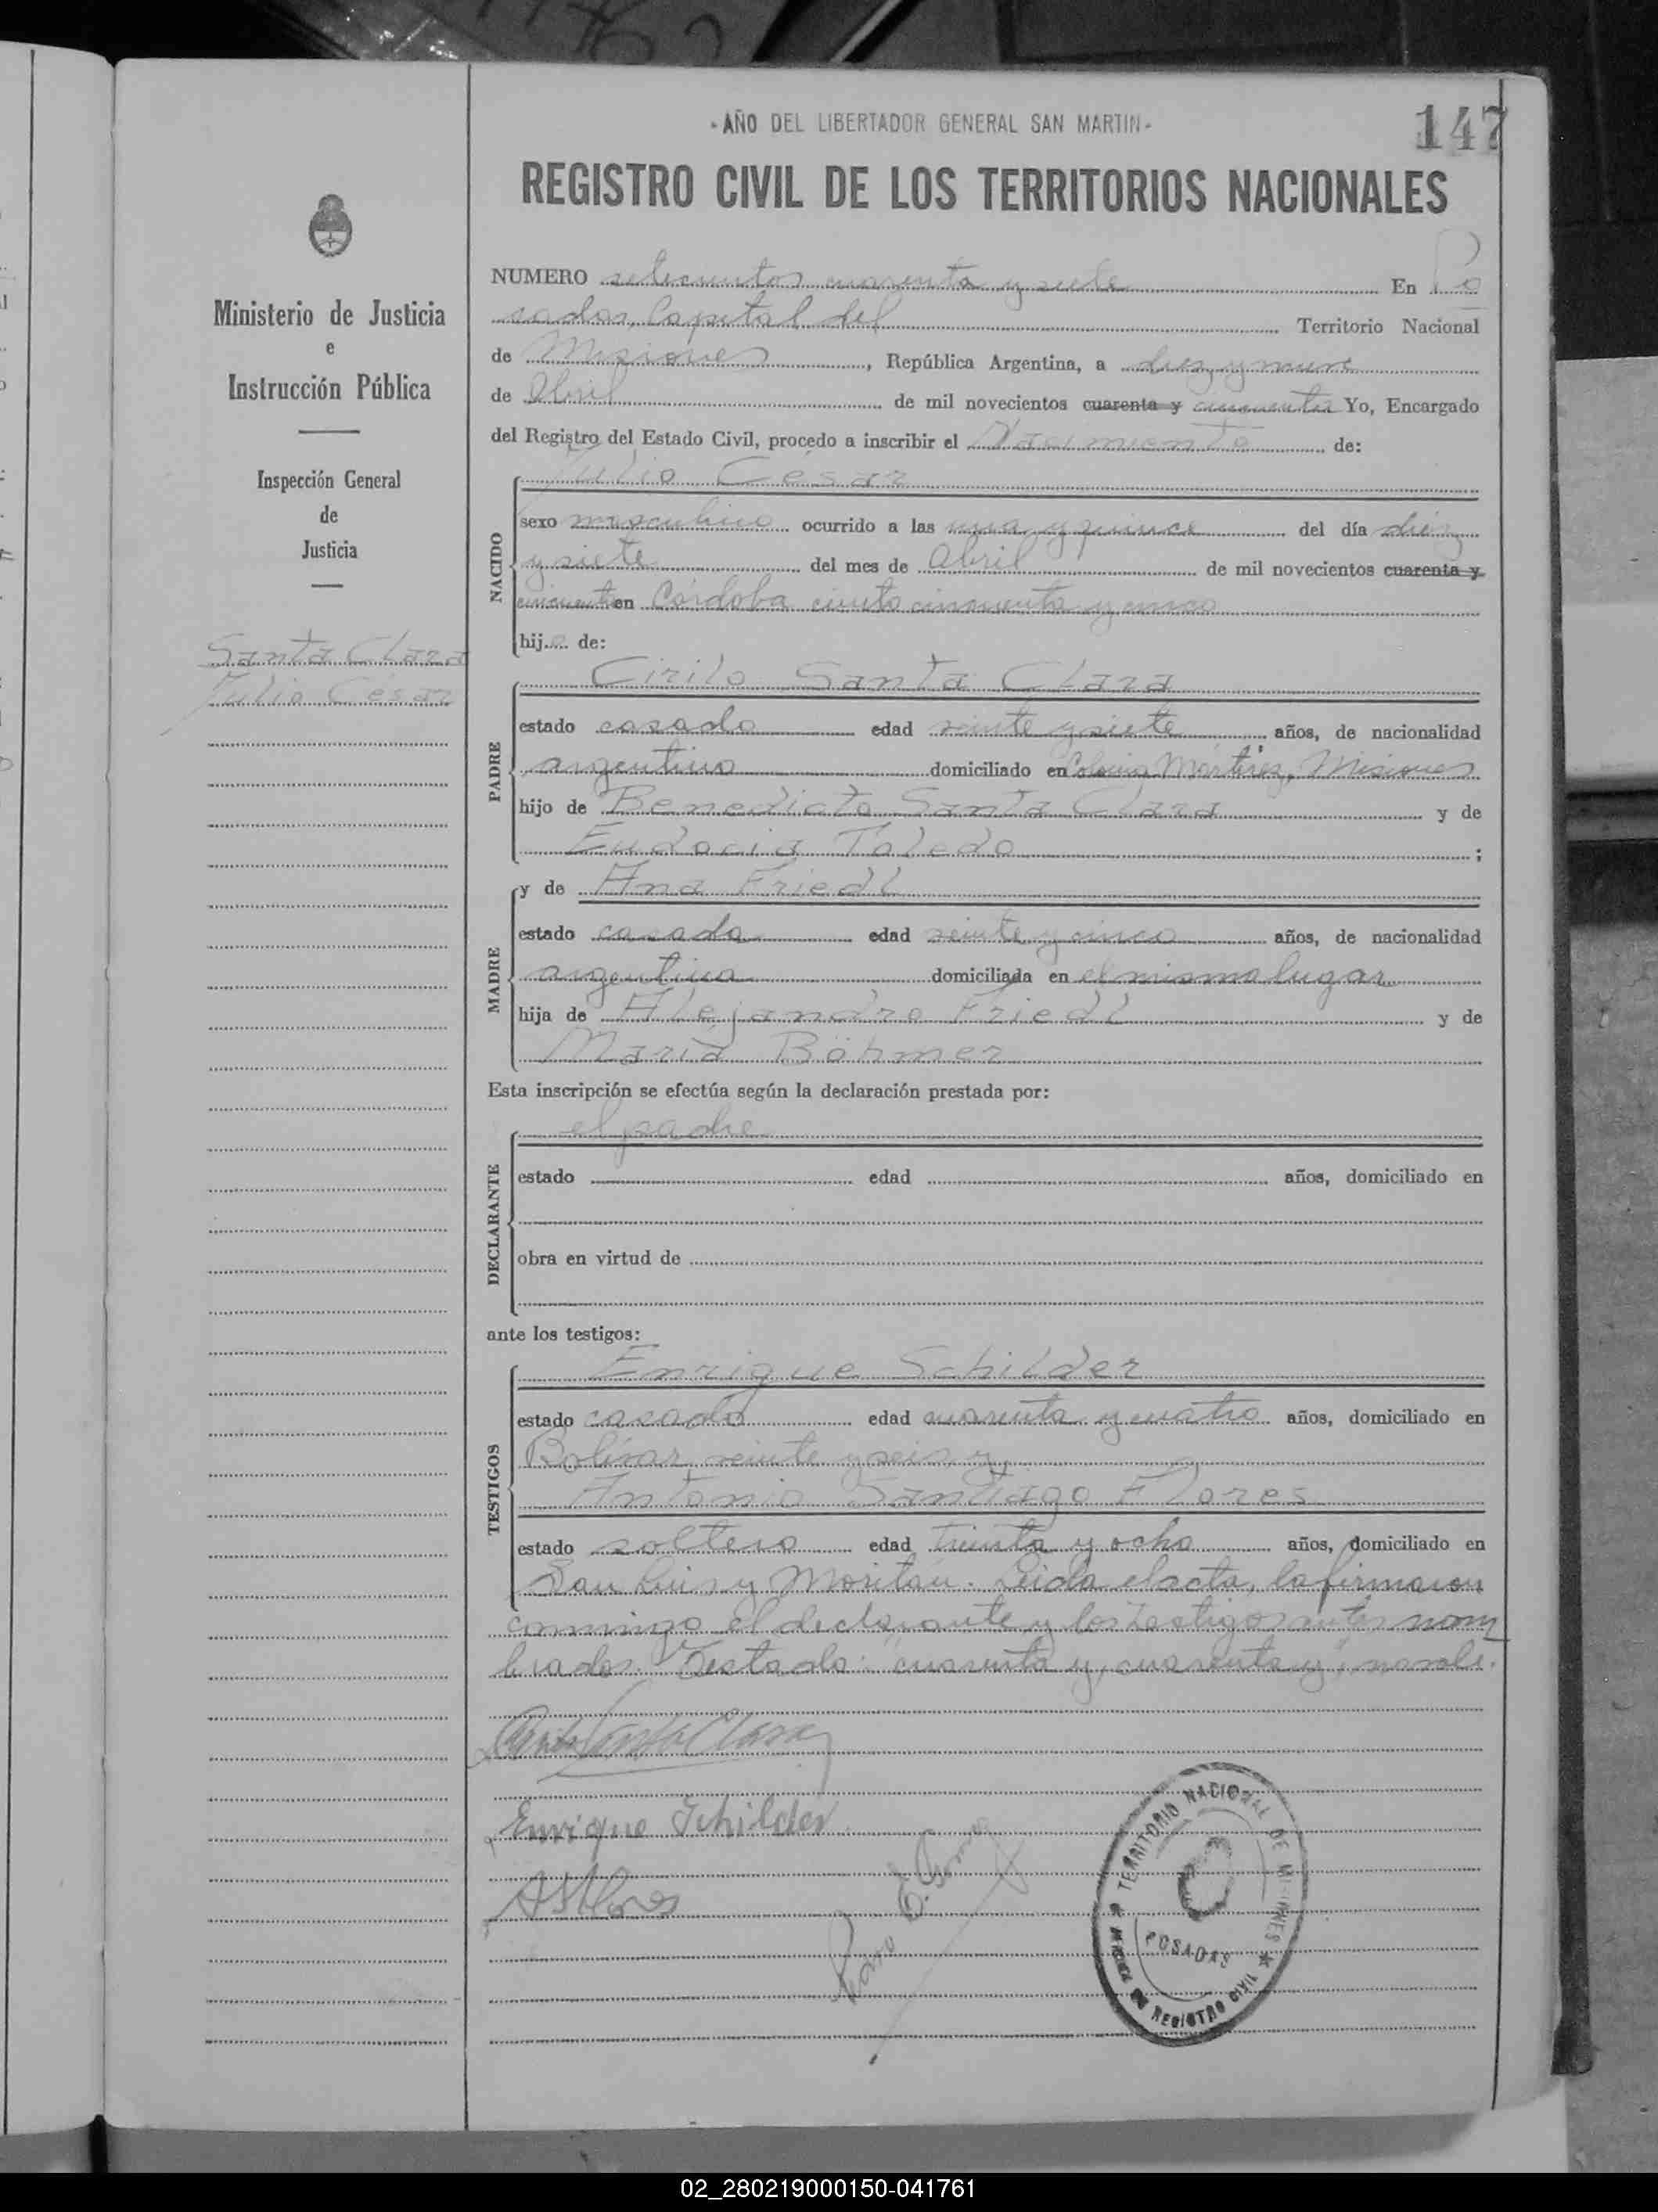 - AÑO DEL LIBERTADOR GENERAL SAN MARTIN -
147
REGISTRO CIVIL DE LOS TERRITORIOS NACIONALES
Ministerio de Justicia
e
Instrucción Pública
Inspección General
de
Justicia
Santa Clara
Julio César
NUMERO setecientos cuarenta y siete En Po
sadas, Capital del Territorio Nacional
de Misiones, República Argentina, a diez y nueve
de Abril de mil novecientos cuarenta y cincuenta Yo, Encargado
del Registro del Estado Civil, procedo a inscribir el Nacimiento de:
NACIDO
Julio César
sexo masculino ocurrido a las una y quince del día diez
y siete del mes de Abril de mil novecientos cuarenta y
cincuenta en Córdoba ciento cincuenta y cinco
hijo de:
PADRE
Cirilo Santa Clara
estado casado edad veinte y siete años, de nacionalidad
argentino domiciliado en Colonia Mártires, Misiones
hijo de Benedicto Santa Clara y de
Eudocia Toledo ;
MADRE
y de Ana Friedl
estado casada edad veinte y cinco años, de nacionalidad
argentina domiciliada en el mismo lugar
hija de Alejandro Friedl y de
María Böhmer
Esta inscripción se efectúa según la declaración prestada por:
DECLARANTE
el padre
estado edad años, domiciliado en
obra en virtud de
ante los testigos:
TESTIGOS
Enrique Schilder
estado casado edad cuarenta y cuatro años, domiciliado en
Bolívar veinte y seis y
Antonio Santiago Flores
estado soltero edad treinta y ocho años, domiciliado en
San Luis y Moritán. Leida el acta, la firmaron
conmigo el declarante y los testigos antes nom
brados. Testado: "cuarenta y, cuarenta y", no vale.
Cirilo Santa Clara
Enrique Schilder
ASFlores
TERRITORIO NACIONAL DE MISIONES
POSADAS
REGISTRO CIVIL
02_280219000150-041761